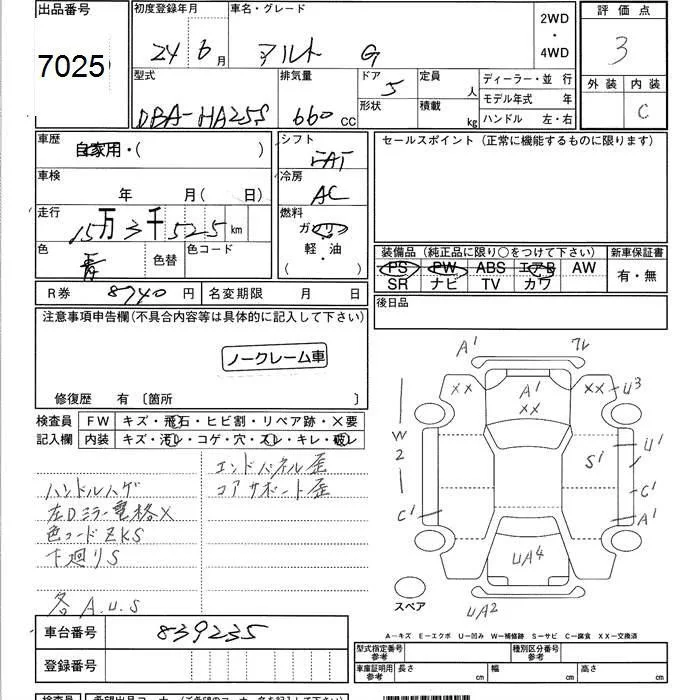 出品番号
7025
初度登録年月
24 6月
車名・グレード
アルト G
2WD
・
4WD
評価点
3
外装 内装
C
型式
DBA-HA25S
排気量
660 CC
ドア 5
形状
定員 人
積載 kg
ディーラー・並 行
モデル年式 年
ハンドル 左・右
車歴
自家用・( )
シフト
FAT
セールスポイント (正常に機能するものに限ります)
車検
年 月( 日)
冷房
AC
走行
15万3千525 km
燃料
ガソリン
軽・油
( )
色
青
色替
色コード
装備品 (純正品に限り○をつけて下さい)
新車保証書
PS PW ABS エアB AW
SR ナビ TV カワ
有・無
R券 8740 円
名変期限 月 日
後日品
注意事項申告欄(不具合内容等は具体的に記入して下さい)
ノークレーム車
修復歴 有 〔箇所 〕
検査員
記入欄
FW キズ・飛石・ヒビ割・リペア跡・×要
内装 キズ・汚レ・コゲ・穴・スレ・キレ・破レ
エンドパネル歪
ハンドルハゲ
コアサポート歪
左Dミラー電格×
色コードZKS
下廻りS
各A.U.S
A1
フレ
XX
A1
XX
XX
U3
W2
S1
U1
C1
C1
A1
UA4
スペア
UA2
A－キズ E－エクボ U－凹み W－補修跡 S－サビ C－腐食 XX－交換済
車台番号 839235
登録番号
型式指定番号
参考
種別区分番号
参考
車庫証明用
参考
長さ cm
幅 cm
高さ cm
検査員
希望出品コーナー (ご希望のコーナー名を記入下さい)